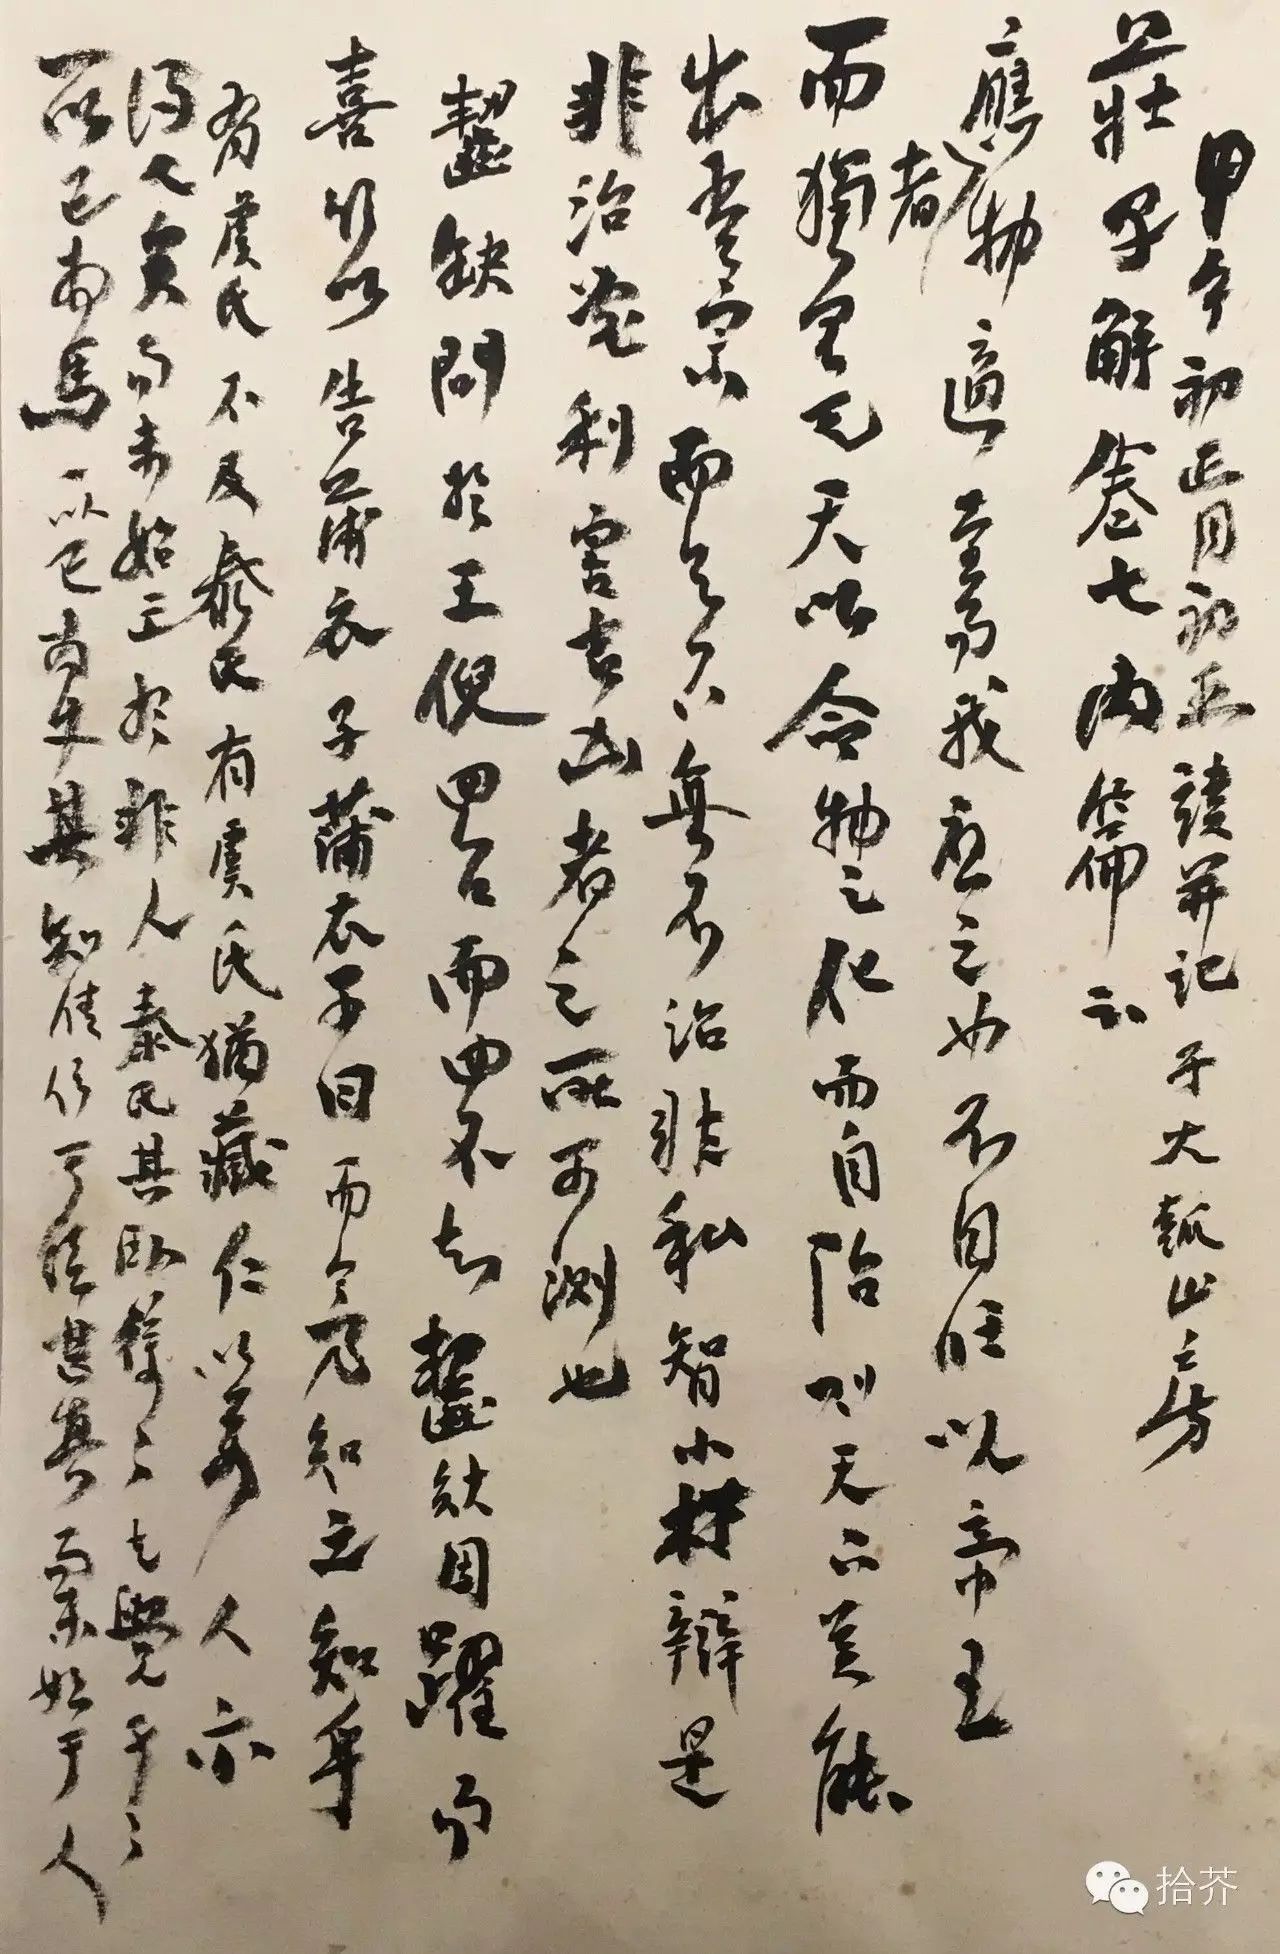 甲午初正月初五讀并記于大瓠山之房
莊子解卷七內篇云
應物者適至而我應之也不自旺以帝王
而獨立己天以命物之化而自陷則天下莫能
出吾宗而天下無不治非私智小材辯是
非治亂利害吉凶者之所可測也
齧缺問於王倪四問而四不知齧缺因躍而
喜行以告蒲衣子蒲衣子曰而今乃知之知乎
有虞氏不及泰氏有虞氏猶藏仁以要人亦
得人矣而未始出於非人泰氏其臥徐徐其覺于于
一以己為馬一以己為牛其知情信其德甚真而未始入于人
拾芥